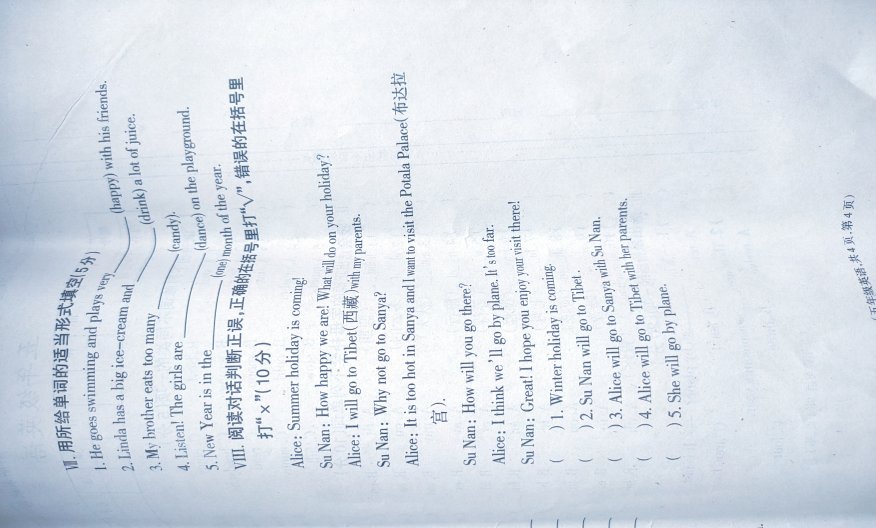 Ⅶ. 用所给单词的适当形式填空(5分)
1. He goes swimming and plays very ______ (happy) with his friends.
2. Linda has a big ice-cream and ______ (drink) a lot of juice.
3. My brother eats too many ______ (candy).
4. Listen! The girls are ______ (dance) on the playground.
5. New Year is in the ______ (one) month of the year.
VIII. 阅读对话判断正误,正确的在括号里打“√”,错误的在括号里
打“×”(10分)
Alice: Summer holiday is coming!
Su Nan: How happy we are! What will do on your holiday?
Alice: I will go to Tibet(西藏)with my parents.
Su Nan: Why not go to Sanya?
Alice: It is too hot in Sanya and I want to visit the Potala Palace(布达拉
宫).
Su Nan: How will you go there?
Alice: I think we'll go by plane. It's too far.
Su Nan: Great! I hope you enjoy your visit there!
( ) 1. Winter holiday is coming.
( ) 2. Su Nan will go to Tibet.
( ) 3. Alice will go to Sanya with Su Nan.
( ) 4. Alice will go to Tibet with her parents.
( ) 5. She will go by plane.
(五年级英语,共4页,第4页)